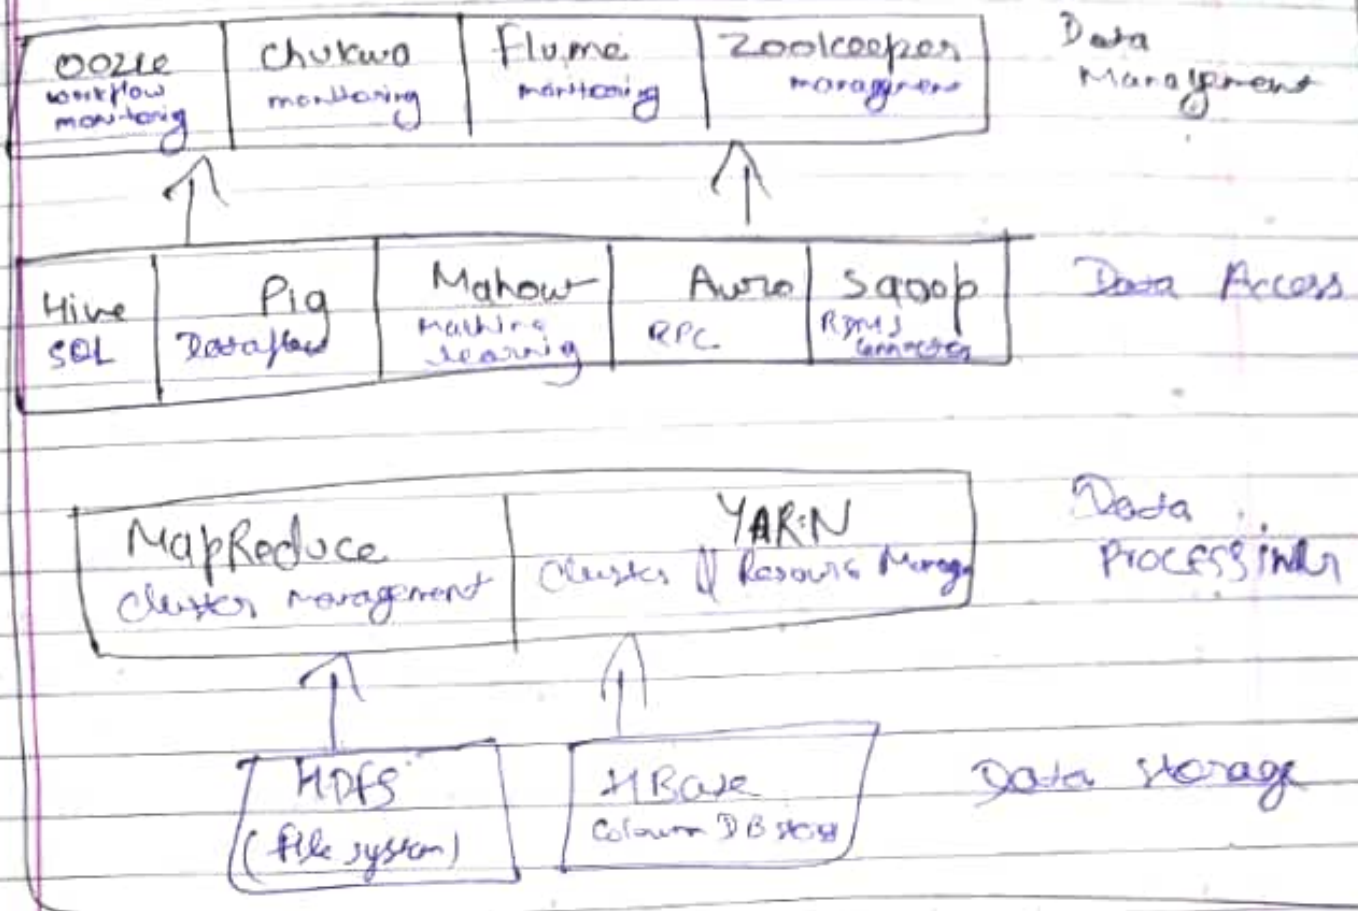 Oozie
workflow
monitoring
Chukwa
monitoring
Flume
monitoring
Zookeeper
management
Data
Management
Hive
SQL
Pig
Dataflow
Mahout
Machine
learning
Avro
RPC
Sqoop
RDMS
Connector
Data Access
MapReduce
Cluster management
YARN
Cluster & Resource Manage
Data
Processing
HDFS
(file system)
HBase
Column DB
Data storage